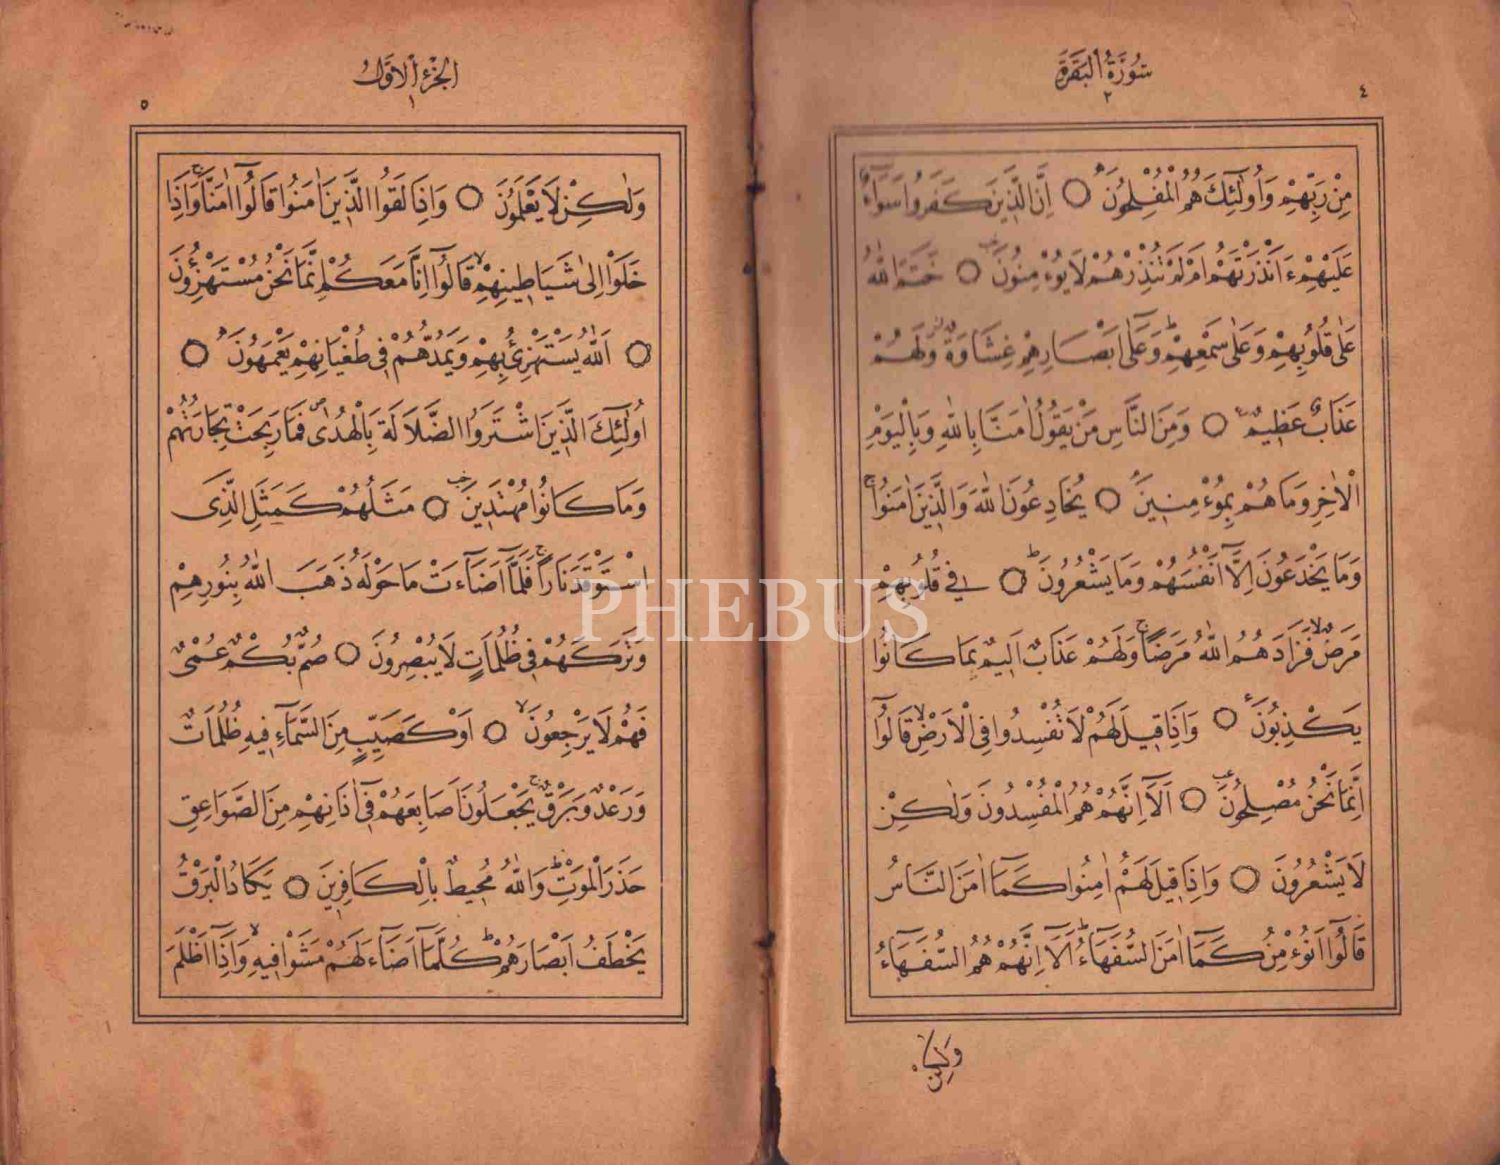 سُورَةُ الْبَقَرَةِ
٢
٤
مِنْ رَبِّهِمْ وَاُولٰئِكَ هُمُ الْمُفْلِحُونَ ۝ اِنَّ الَّذِينَ كَفَرُوا سَوَآءٌ
عَلَيْهِمْ ءَاَنْذَرْتَهُمْ اَمْ لَمْ تُنْذِرْهُمْ لَا يُؤْمِنُونَ ۝ خَتَمَ اللّٰهُ
عَلٰى قُلُوبِهِمْ وَعَلٰى سَمْعِهِمْ وَعَلٰٓى اَبْصَارِهِمْ غِشَاوَةٌ وَلَهُمْ
عَذَابٌ عَظِيمٌ ۝ وَمِنَ النَّاسِ مَنْ يَقُولُ اٰمَنَّا بِاللّٰهِ وَبِالْيَوْمِ
الْاٰخِرِ وَمَا هُمْ بِمُؤْمِنِينَ ۝ يُخَادِعُونَ اللّٰهَ وَالَّذِينَ اٰمَنُوا
وَمَا يَخْدَعُونَ اِلَّٓا اَنْفُسَهُمْ وَمَا يَشْعُرُونَ ۝ فِي قُلُوبِهِمْ
مَرَضٌ فَزَادَهُمُ اللّٰهُ مَرَضًا وَلَهُمْ عَذَابٌ اَلِيمٌ بِمَا كَانُوا
يَكْذِبُونَ ۝ وَاِذَا قِيلَ لَهُمْ لَا تُفْسِدُوا فِي الْاَرْضِ قَالُٓوا
اِنَّمَا نَحْنُ مُصْلِحُونَ ۝ اَلَٓا اِنَّهُمْ هُمُ الْمُفْسِدُونَ وَلٰكِنْ
لَا يَشْعُرُونَ ۝ وَاِذَا قِيلَ لَهُمْ اٰمِنُوا كَمَٓا اٰمَنَ النَّاسُ
قَالُٓوا اَنُؤْمِنُ كَمَٓا اٰمَنَ السُّفَهَآءُ اَلَٓا اِنَّهُمْ هُمُ السُّفَهَآءُ
وَلٰكِنْ
اَلْجُزْءُ الْاَوَّلُ
١
٥
وَلٰكِنْ لَا يَعْلَمُونَ ۝ وَاِذَا لَقُوا الَّذِينَ اٰمَنُوا قَالُٓوا اٰمَنَّا وَاِذَا
خَلَوْا اِلٰى شَيَاطِينِهِمْ قَالُٓوا اِنَّا مَعَكُمْ اِنَّمَا نَحْنُ مُسْتَهْزِؤُنَ
۝ اَللّٰهُ يَسْتَهْزِئُ بِهِمْ وَيَمُدُّهُمْ فِي طُغْيَانِهِمْ يَعْمَهُونَ ۝
اُولٰئِكَ الَّذِينَ اشْتَرَوُا الضَّلَالَةَ بِالْهُدٰى فَمَا رَبِحَتْ تِجَارَتُهُمْ
وَمَا كَانُوا مُهْتَدِينَ ۝ مَثَلُهُمْ كَمَثَلِ الَّذِى
اسْتَوْقَدَ نَارًا فَلَمَّٓا اَضَٓاءَتْ مَا حَوْلَهُ ذَهَبَ اللّٰهُ بِنُورِهِمْ
وَتَرَكَهُمْ فِي ظُلُمَاتٍ لَا يُبْصِرُونَ ۝ صُمٌّ بُكْمٌ عُمْىٌ
فَهُمْ لَا يَرْجِعُونَ ۝ اَوْ كَصَيِّبٍ مِنَ السَّمَٓاءِ فِيهِ ظُلُمَاتٌ
وَرَعْدٌ وَبَرْقٌ يَجْعَلُونَ اَصَابِعَهُمْ فِٓي اٰذَانِهِمْ مِنَ الصَّوَاعِقِ
حَذَرَ الْمَوْتِ وَاللّٰهُ مُحِيطٌ بِالْكَافِرِينَ ۝ يَكَادُ الْبَرْقُ
يَخْطَفُ اَبْصَارَهُمْ كُلَّمَٓا اَضَٓاءَ لَهُمْ مَشَوْا فِيهِ وَاِذَٓا اَظْلَمَ
PHEBUS